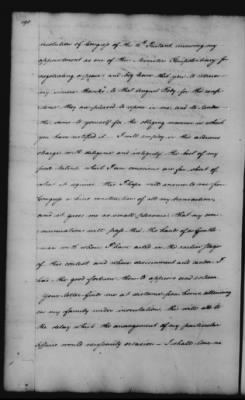 resolution of Congress of the 12th Instant renewing my
appointment as one of their Ministers Plenipotentiary for
negotiating a peace; and beg leave thro' you to return
my sincere thanks to that august Body for the confi-
dence they are pleased to repose in me, and to tender
the same to yourself for the obliging manner in which
you have notified it. I will employ in this arduous
charge with diligence and integrity the best of my
poor talents which I am conscious are far short of
what it requires. This I hope will ensure to me from
Congress a kind construction of all my transactions,
and it gives me no small pleasure that my com-
munications will pass thro' the hands of a gentle-
man with whom I have acted in the earlier stages
of this contest and whose discernment and candor I
had the good fortune then to approve and esteem
Your letter finds me at distance from home attending
on my family under inoculation. this will add to
the delay which the arrangement of my particular
affairs would necessarily occasion. I shall lose no